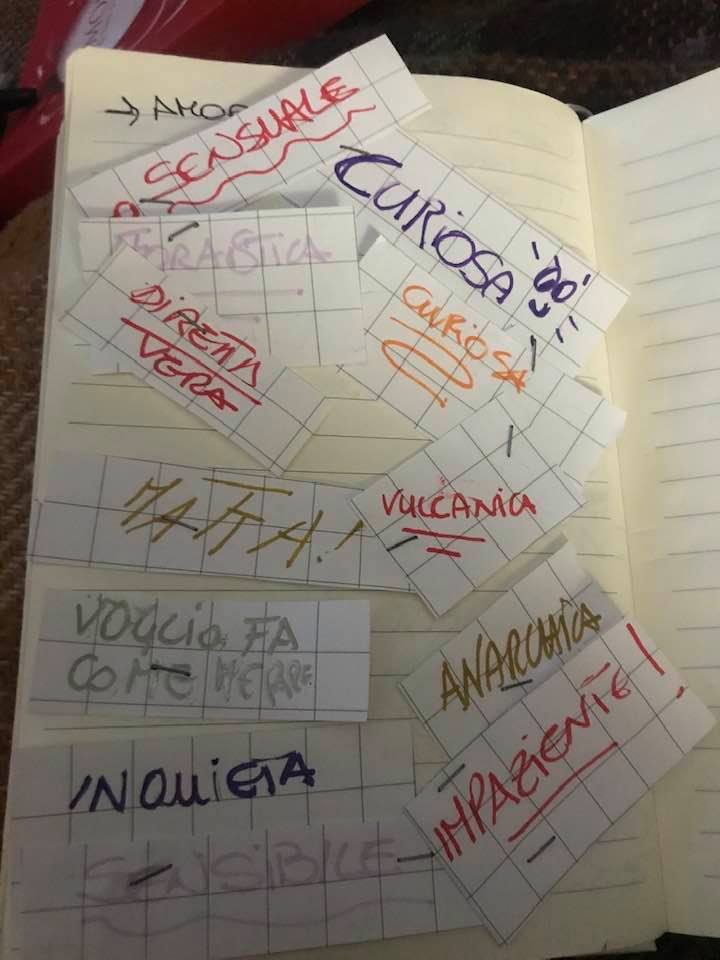 → AMOR
SENSUALE
CURIOSA
CURIOSA
DIRETTA
VERA
MATTA!
VULCANICA
VOGLIO FA
COME MERPE
ANARCHICA
IMPAZIENTE!
INQUIETA
SENSIBILE